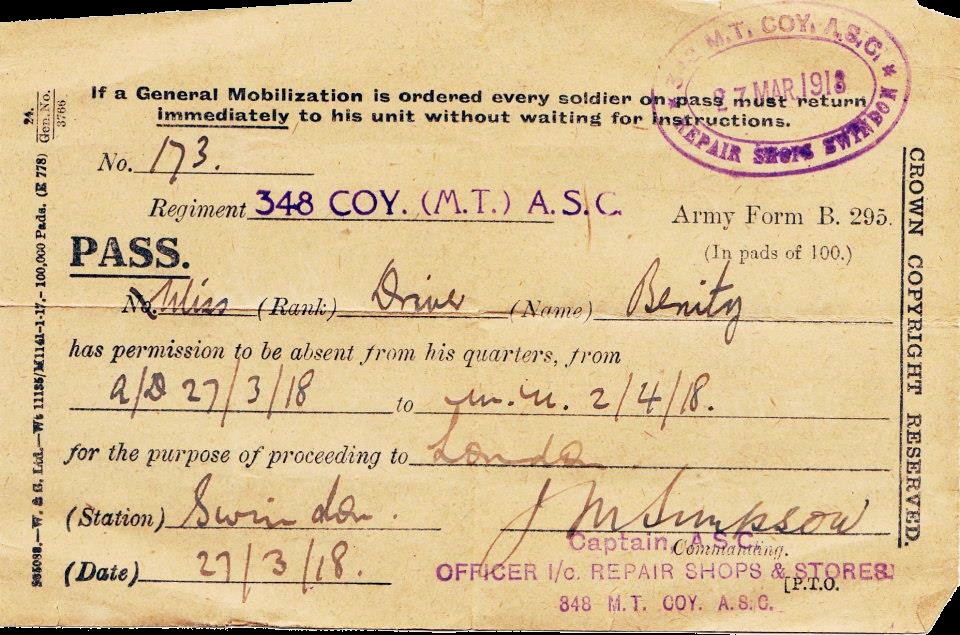 348 M.T. COY. A.S.C.
27 MAR 1918
REPAIR SHOPS SWINDON
If a General Mobilization is ordered every soldier on pass must return
immediately to his unit without waiting for instructions.
No. 173.
Regiment 348 COY. (M.T.) A.S.C.
Army Form B. 295.
(In pads of 100.)
PASS.
No. Miss (Rank) Driver (Name) Benity
has permission to be absent from his quarters, from
A/D 27/3/18 to 2/4/18.
for the purpose of proceeding to London
(Station) Swindon. J M Simpson
Captain, A.S.C.
Commanding.
(Date) 27/3/18.
OFFICER I/c. REPAIR SHOPS & STORES
[P.T.O.
348 M.T. COY. A.S.C.
CROWN COPYRIGHT RESERVED.
24. Gen. No. 3766
W. & G. Ltd.—Wt 11185/M1141-1-17.-100,000 Pads. (E 778)